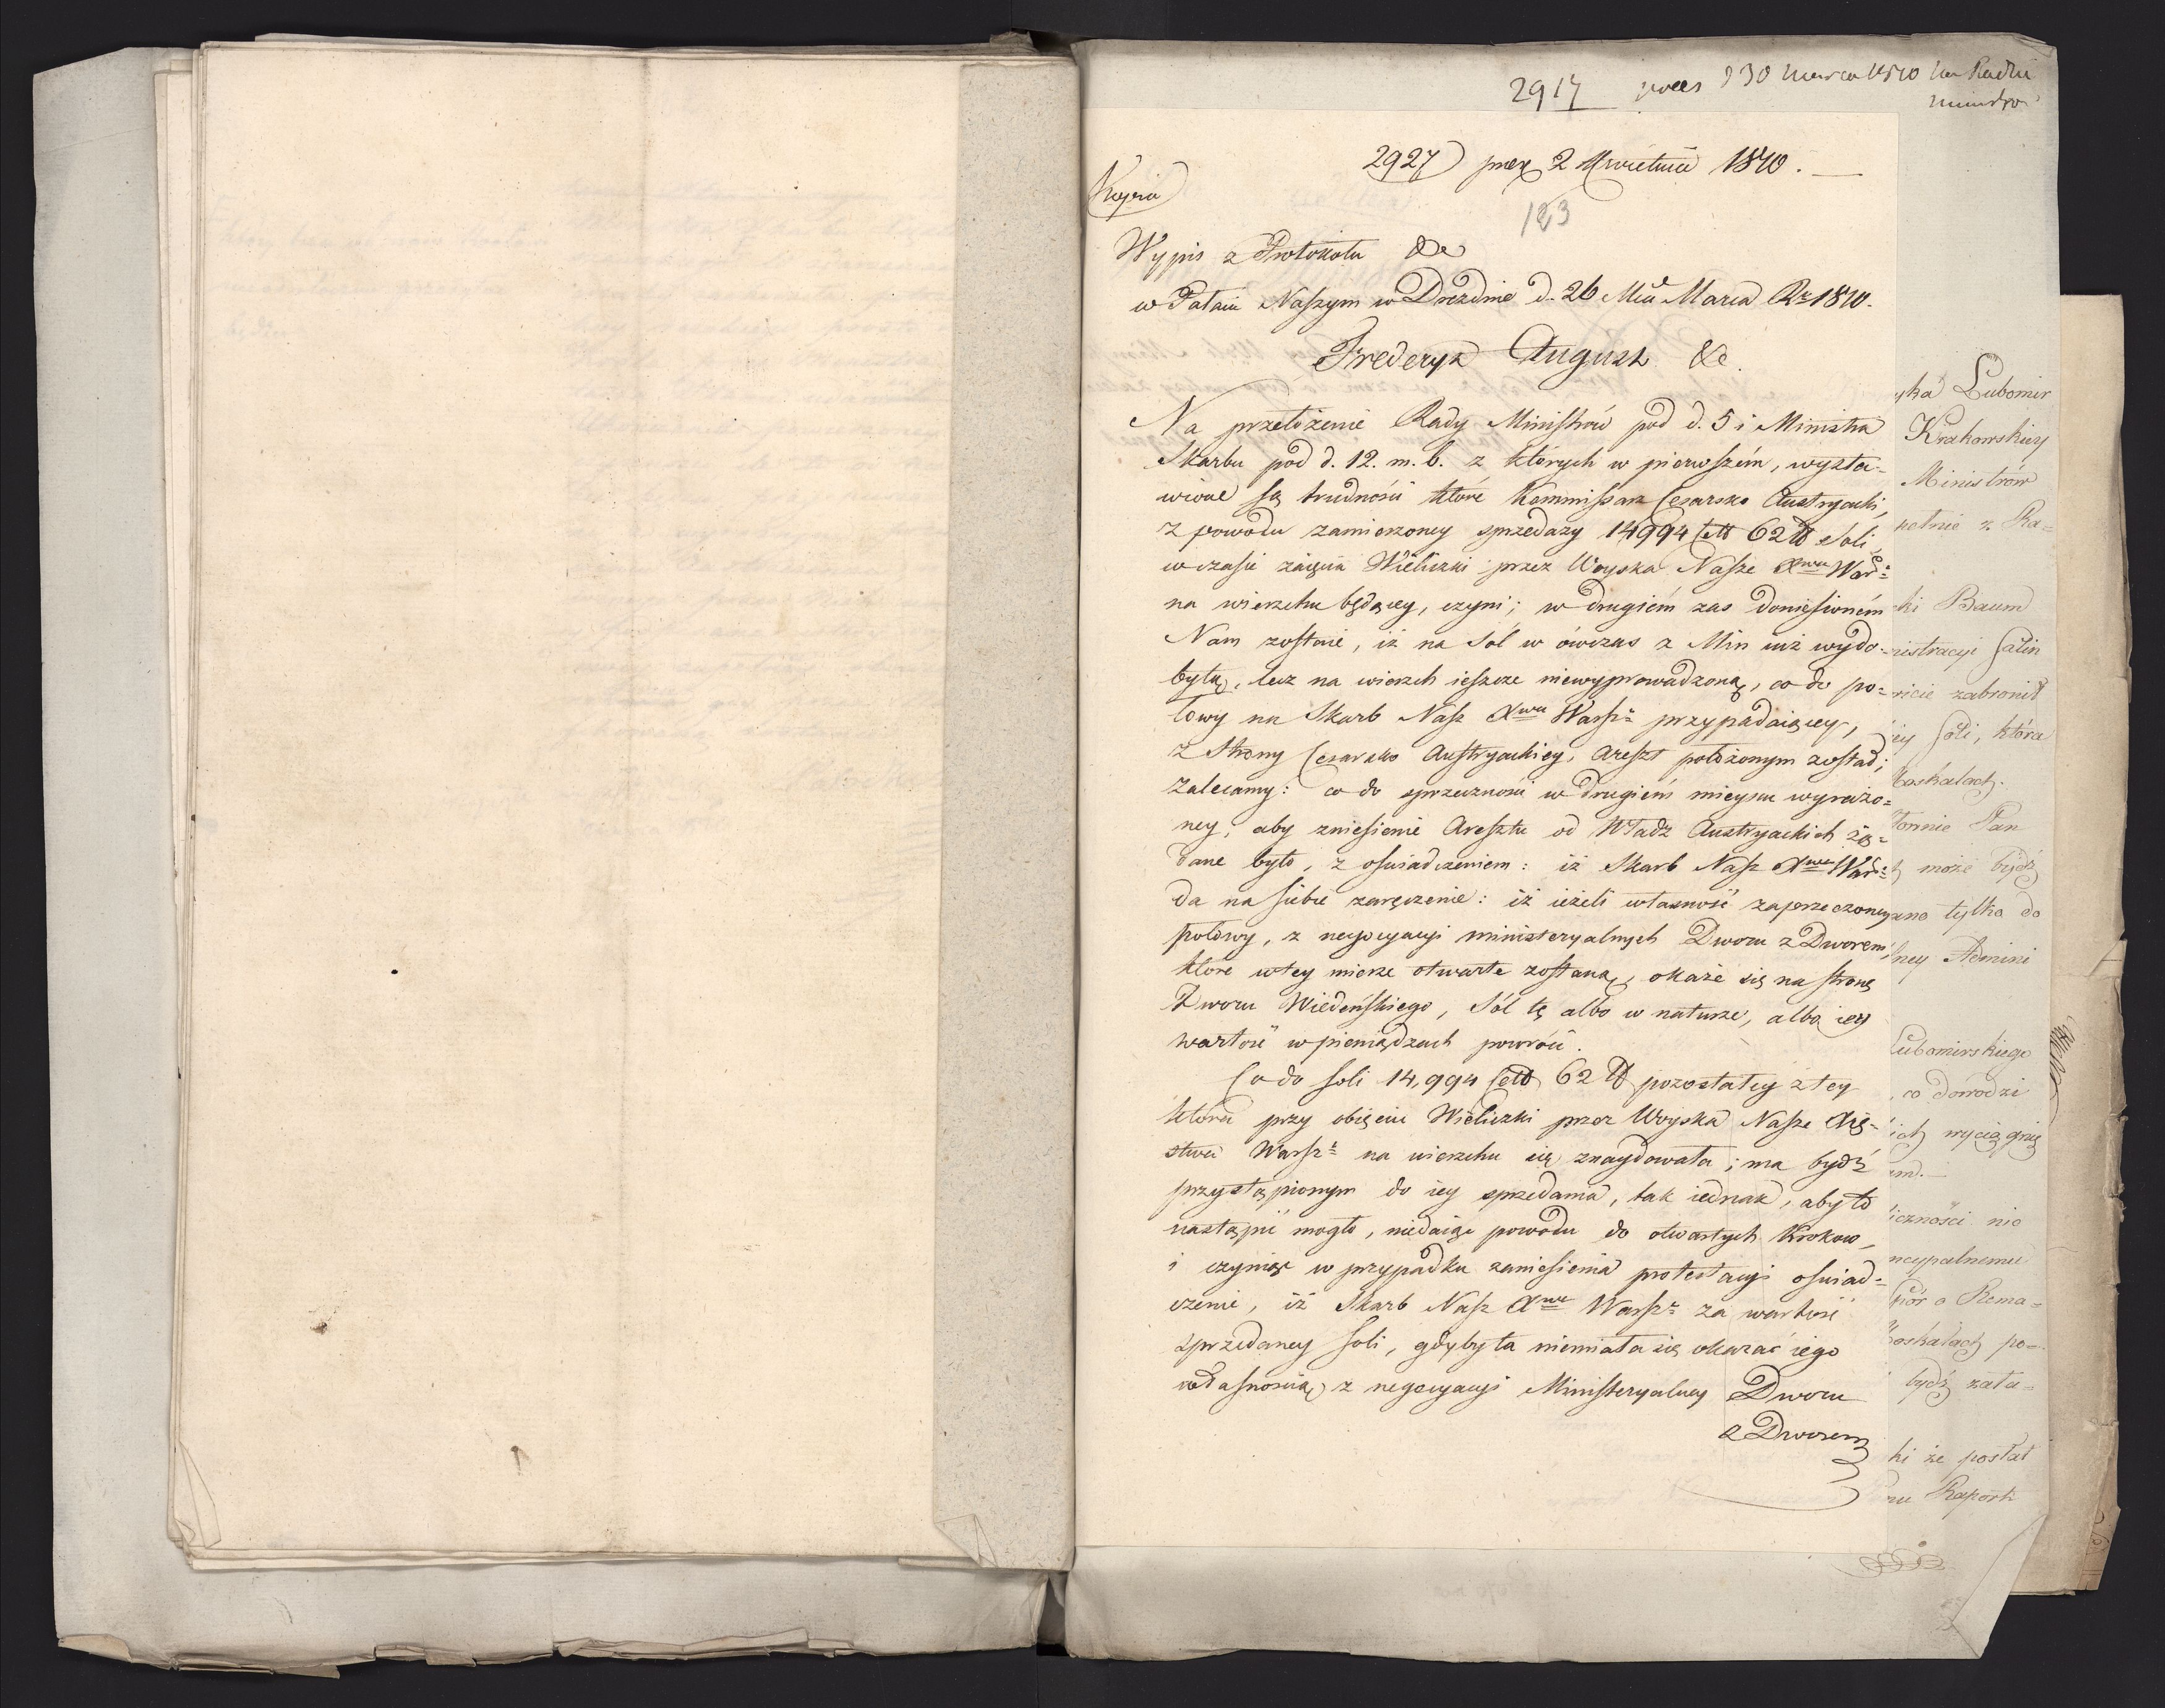 2917 praes d 30 Marca 1810 na Radzie
ministrów
2927) praes 2 Kwietnia 1810. —
Kopia
123
Wypis z Protokołu &c
w Pałacu Naszym w Dreźnie d. 26 Mca Marca Rº 1810.
Frederyk August &c.
Na przełożenie Rady Ministrów pod d. 5 i Ministra
Skarbu pod d. 12. m. b. z których w pierwszém, wysta-
wione są trudności które Kommissarz Cesarsko Austryacki,
z powodu zamierzoney sprzedaży 14994 Cett 62 ℔ Soli
w czasie zaięcia Wieliczki przez Woyska Nasze Xwa Wars:
na wierzchu będącey, czyni; w drugiém zas doniesioném
Nam zostaie, iż na Sól w ówczas z Min iuż wydo-
bytą, lecz na wierzch ieszcze niewyprowadzoną, co do po-
łowy na Skarb Nasz Xwa Warsz: przypadaiącey,
z Strony Cesarsko Austryackiey, Areszt położonym został;
Zalecamy: co do sprzeczności w drugiém mieyscu wyrażo-
ney, aby zniesienie Aresztu od Władz Austryackich żą-
dane było, z oświadczeniem: iż Skarb Nasz Xwa Wars:
da na siebie zaręczenie: iż ieżeli własność zaprzeczoney
połowy, z negocyacyi ministeryalnych Dworu z Dworem,
które w tey mierze otwarte zostaną, okaże się na stronę
Dworu Wiedeńskiego, Sól tę albo w naturze, albo iey
wartość w pieniądzach powróci.
Co do soli 14,994 Cett 62 ℔ pozostałey z tey
która przy obięciu Wieliczki przez Woyska Nasze Xię-
stwa Warsz: na wierzchu się znaydowała; ma bydź
przystąpionym do iey sprzedania, tak iednak, aby to
nastąpić mogło, niedaiąc powodu do otwartych Kroków,
i czyniąc w przypadku zaniesienia protestacyi oświad-
czenie, iż Skarb Nasz Xwa Warsz: za wartość
sprzedaney soli, gdyby ta niemiała się okazać iego
własnością, z negocyacyi Ministeryalney Dworu
z Dworem
yka Lubomir
Krakowskiey
Ministrów
netnie z Ra-
ki Baum
nistracyi Salin
ricie zabronił
ey Soli, która
toskałach.
Tonnie Pan
może bydź
zno tylko do
ney Admini
Lubomirskiego
, co dowodzi
ich wyciągnię
um. —
iczności nie
ncypalnemu
pór o Rema-
Toskałach po-
bydź zała-
ki że posłał
mu Raport